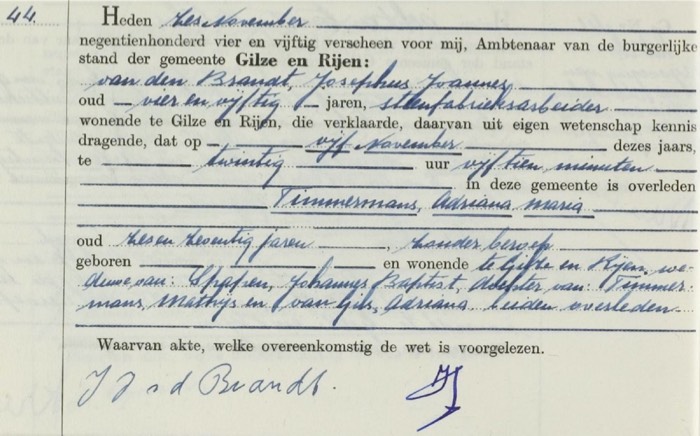 44.
Heden zes November
negentienhonderd vier en vijftig verscheen voor mij, Ambtenaar van de burgerlijke
stand der gemeente Gilze en Rijen:
van den Brandt, Josephus Joannes
oud vier en vijftig jaren, steenfabrieksarbeider
wonende te Gilze en Rijen, die verklaarde, daarvan uit eigen wetenschap kennis
dragende, dat op vijf November dezes jaars,
te twintig uur vijftien minuten
in deze gemeente is overleden
Timmermans, Adriana Maria
oud zes en zestig jaren, zonder beroep
geboren en wonende te Gilze en Rijen, we-
duwe van: Spapen, Johannes Baptist, dochter van: Timmer-
mans, Mathijs en van Gils, Adriana beiden overleden
Waarvan akte, welke overeenkomstig de wet is voorgelezen.
J J v d Brandt.